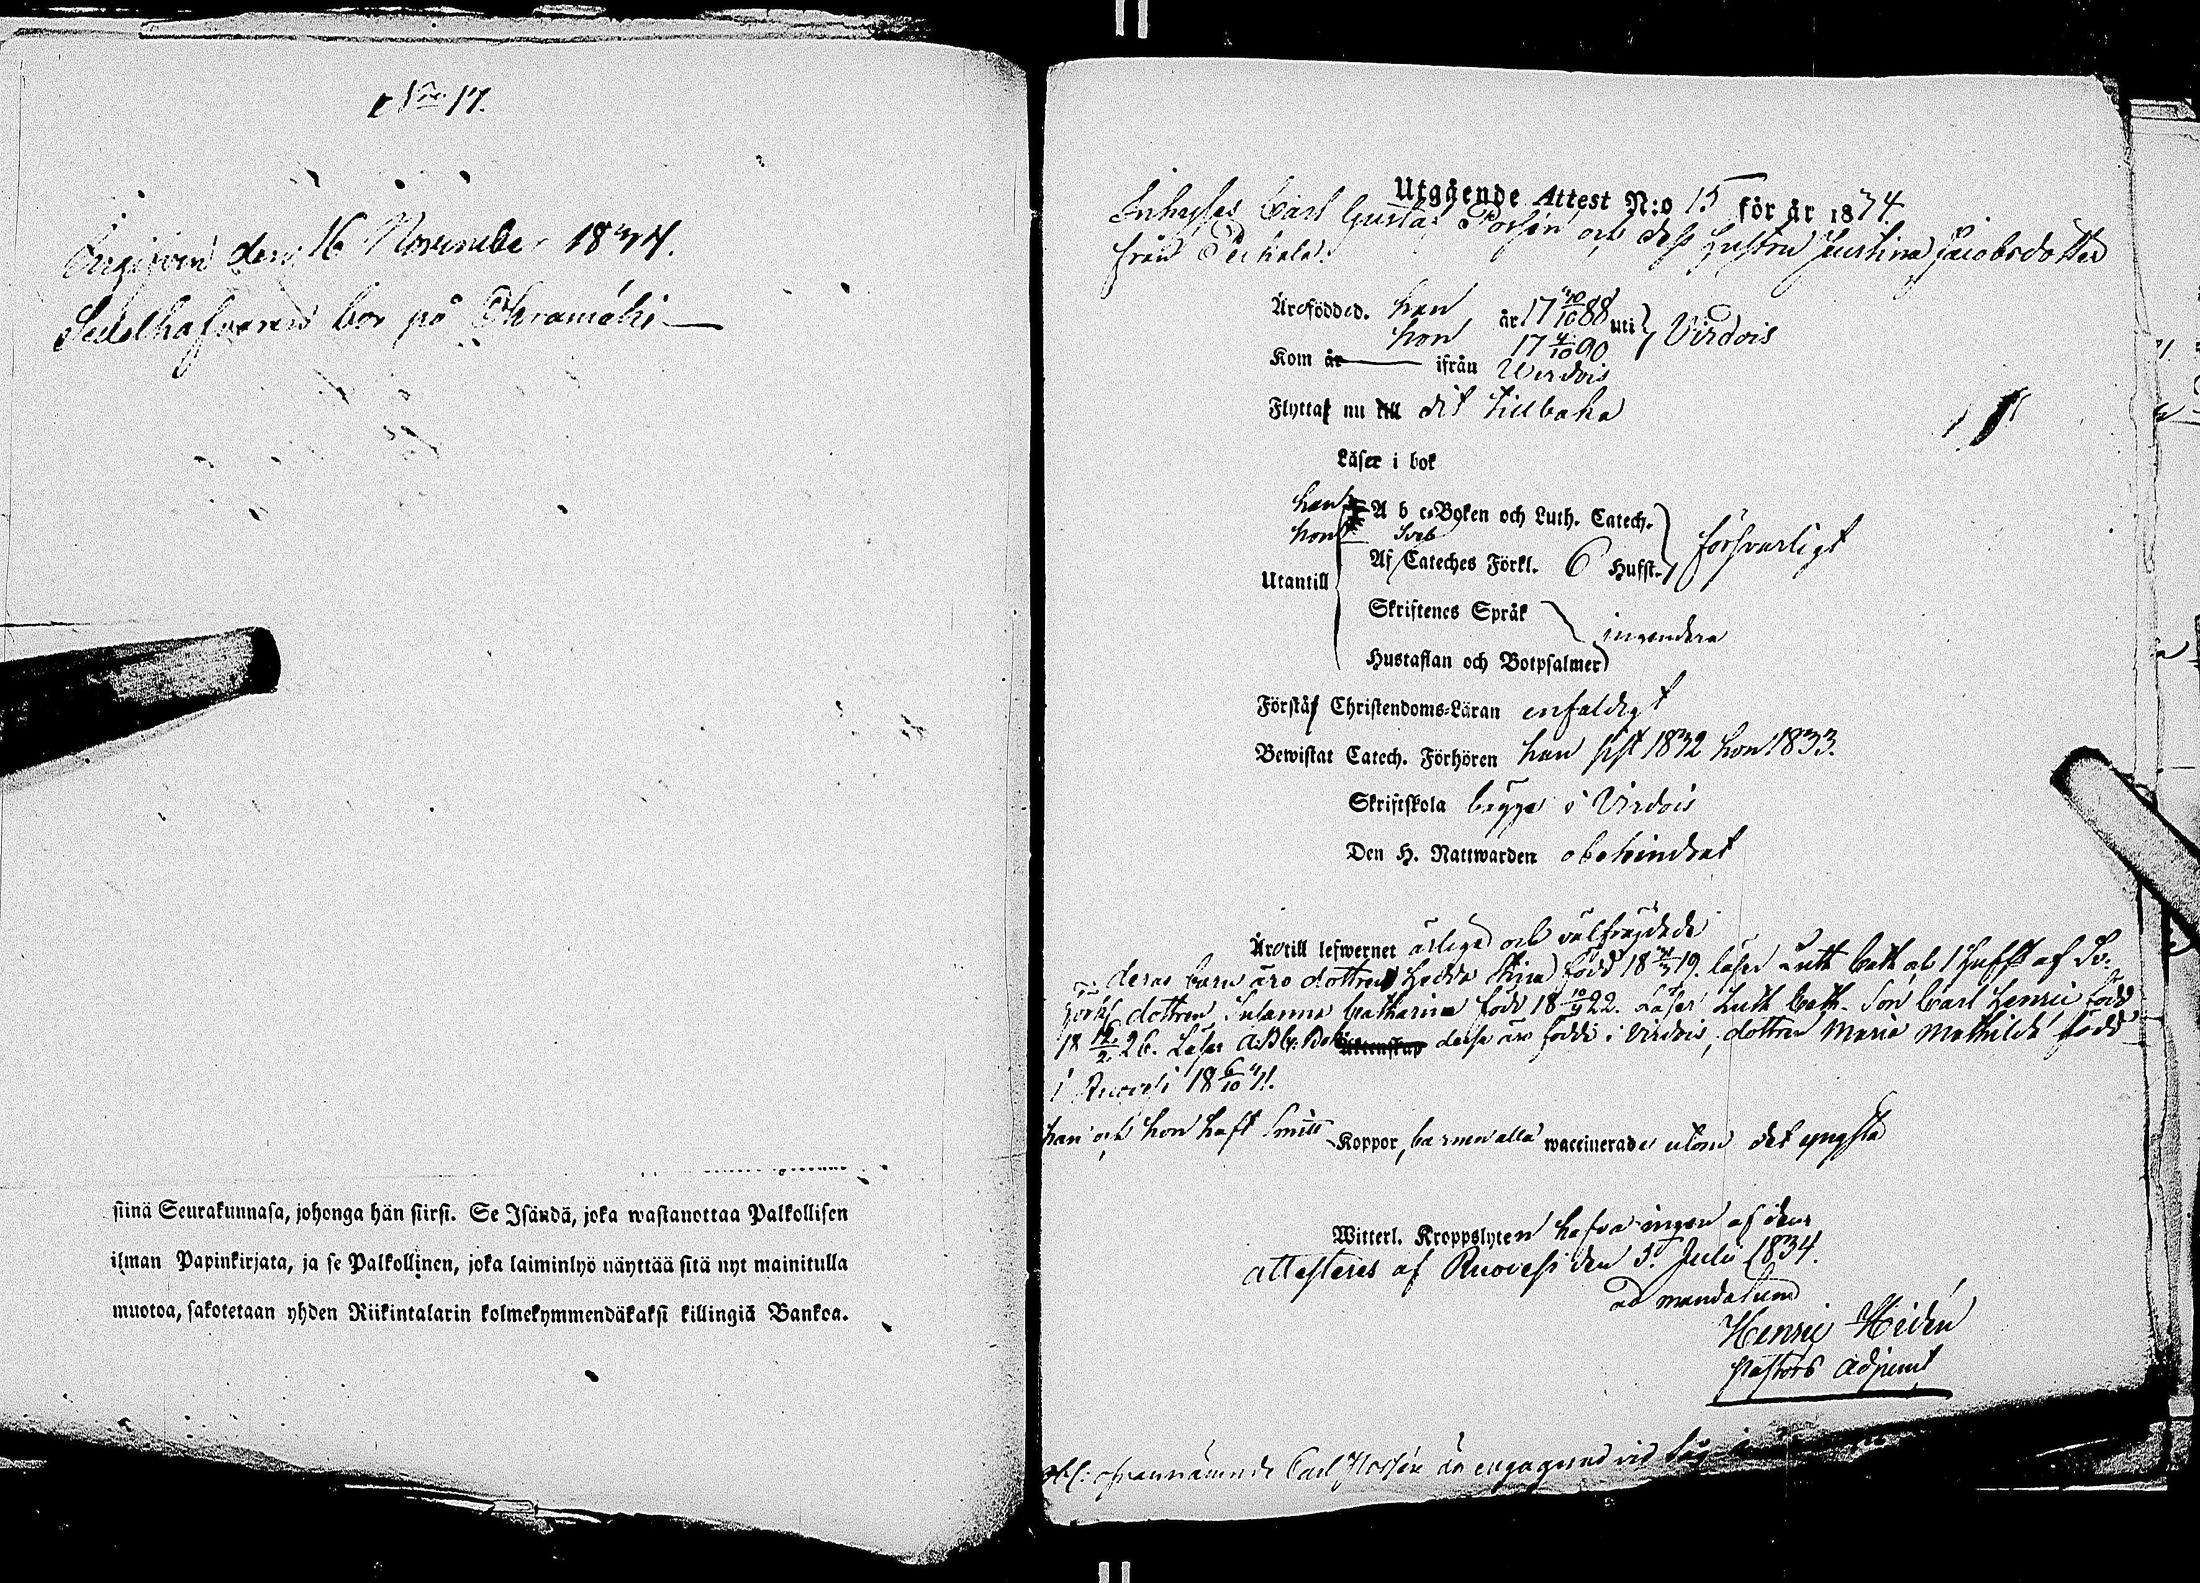 No 17.
Ingifven den 16 November 1834.
Sedelhafvaren bor på Ohramäki
siinä Seurakunnasa, johonga hän siirsi. Se Isändä, joka wastanottaa Palkollisen
ilman Papinkirjata, ja se Palkollinen, joka laiminlyö näyttää sitä nyt mainitulla
muotoa, sakotetaan yhden Riikintalarin kolmekymmendäkaksi killingiä Bankoa.
Utgående Attest N:o 15 för år 1834.
Inhyses Carl Gustaf Forsén och dess hustru Justina Jacobsdotter
från Pekkala.
Äro födde d. han år 17 30/10 88 uti Virdois
hon 17 4/10 90
Kom år ifrån Virdois
Flytta nu till dit tillbaka
Läser i bok
han A b c-Boken och Luth. Catech.
hon Sveb
Utantill Af Cateches Förkl. 6 Hufst. försvarligt
Skriftenes Språk
ingendera
Hustaflan och Botpsalmer
Förstå Christendoms-Läran enfaldigt
Bewistat Catech. Förhören han sist 1832 hon 1833.
Skriftskola begge i Virdois
Den H. Nattwarden obehindrat
Äro till lefwernet ärlige och välfrägdade
deras barn äro dottren Hedda Stina född 18 /3 19. läser Luth Cath och 1 Hufst af Sv:
dottren Susanna Catharina född 18 10/9 22. Läser Luth Cath. Son Carl Henric född
18 12/2 26. Läser A.B.C. Boken Ächtenskap desse äro födde i Virdois, dottren Maria Mathilda född
i Ruovesi 18 6/10 31.
han och hon haft Smitt Koppor, barnen alla waccinerade utom det yngsta
Witterl. Kroppslyten hafva ingen af dem
attesteras af Ruovesi den 5. Julii 1834.
ad mandatum
Henric Hidén
Pastors Adjunct
ofvannämnde Carl Forsén är engagerad vid